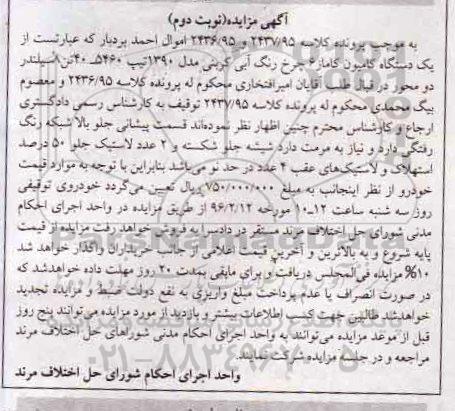 آگهی مزایده(نوبت دوم)
به موجب پرونده کلاسه ۲۴۳۷/۹۵ و ۲۴۳۶/۹۵ اموال احمد بردبار که عبارتست از
یک دستگاه کامیون کاماز ۶ چرخ رنگ آبی کربنی مدل ۱۳۹۰ تیپ ۵۴۶۰ـ ۴۰تن ۸سیلندر
دو محور در قبال طلب آقایان امیرافتخاری محکوم له پرونده کلاسه ۲۴۳۶/۹۵ و معصوم
بیگ محمدی محکوم له پرونده کلاسه ۲۴۳۷/۹۵ توقیف به کارشناس رسمی دادگستری
ارجاع و کارشناس محترم چنین اظهار نظر نموده‌اند قسمت پیشانی جلو بالا شبکه رنگ
رفتگی دارد و نیاز به مرمت دارد شیشه جلو شکسته و ۲ عدد لاستیک جلو ۵۰ درصد
استهلاک و لاستیک‌های عقب ۴ عدد در حد نو می‌باشد بنابراین با توجه به موارد قیمت
خودرو از نظر اینجانب به مبلغ ۷۵۰/۰۰۰/۰۰۰ ریال تعیین می‌گردد خودروی توقیفی
روز سه شنبه ساعت ۱۲ـ۱۰ مورخه ۹۶/۲/۱۲ از طریق مزایده در واحد اجرای احکام
مدنی شورای حل اختلاف مرند مستقر در دادسرا به فروش خواهد رفت مزایده از قیمت
پایه شروع و به بالاترین و آخرین قیمت اعلامی از جانب خریداران واگذار خواهد شد
۱۰% مزایده فی‌المجلس دریافت و برای مابقی بمدت ۲۰ روز مهلت داده خواهدشد که
در صورت انصراف یا عدم پرداخت مبلغ واریزی به نفع دولت ضبط و مزایده تجدید
خواهدشد طالبین جهت کسب اطلاعات بیشتر و بازدید از مورد مزایده می‌توانند پنج روز
قبل از موعد مزایده می‌توانند به واحد اجرای احکام مدنی شوراهای حل اختلاف مرند
مراجعه و در جلسه مزایده شرکت نمایند.
واحد اجرای احکام شورای حل اختلاف مرند